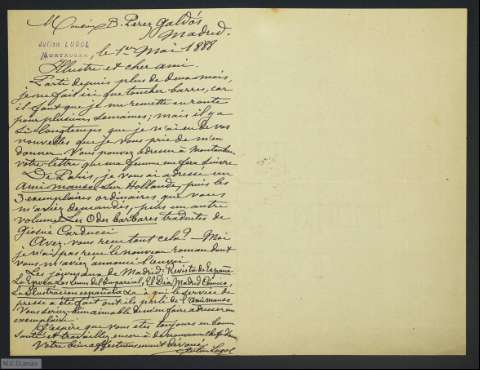 Monsieur B. Perez Galdós
Madrid.
JULIAN LUGOL
MONTAUBAN
, le 1er Mai 1888
Illustre et cher ami.
Parti depuis plus de deux mois,
je ne fait ici que toucher barres, car
il faut que je me remette en route
pour plusieurs semaines; mais il y a
si longtemps que je n'ai eu de vos
nouvelles que je vous prie de m'en
donner. Vous pouvez adresser à Montauban
votre lettre, que ma femme me fera suivre
De Paris, je vous ai adressé un
Ami Manso sur Hollande, puis les
3 exemplaires ordinaires que vous
m'aviez demandés, plus un autre
volume Les Odes barbares traduites de
Giosuè Carducci
Avez-vous reçu tout cela? — Moi
je n'ai pas reçu le nouveau roman dont
vous m'aviez annoncé l'envoi
Les journaux de Madrid: Revista de España
La Epoca, Los Lunes del Imparcial, El Dia, Madrid Comico,
La Ilustracion española &a, à qui le service de
presse a été fait ont ils parlé de l'ami manso
Vous seriez bien aimable de m'en faire adresser un
exemplaire.
J'espère que vous êtes toujours en bonne
santé et travaillez encore à de nouveaux
Votre bien affectueusement dévoué
Julien Lugol